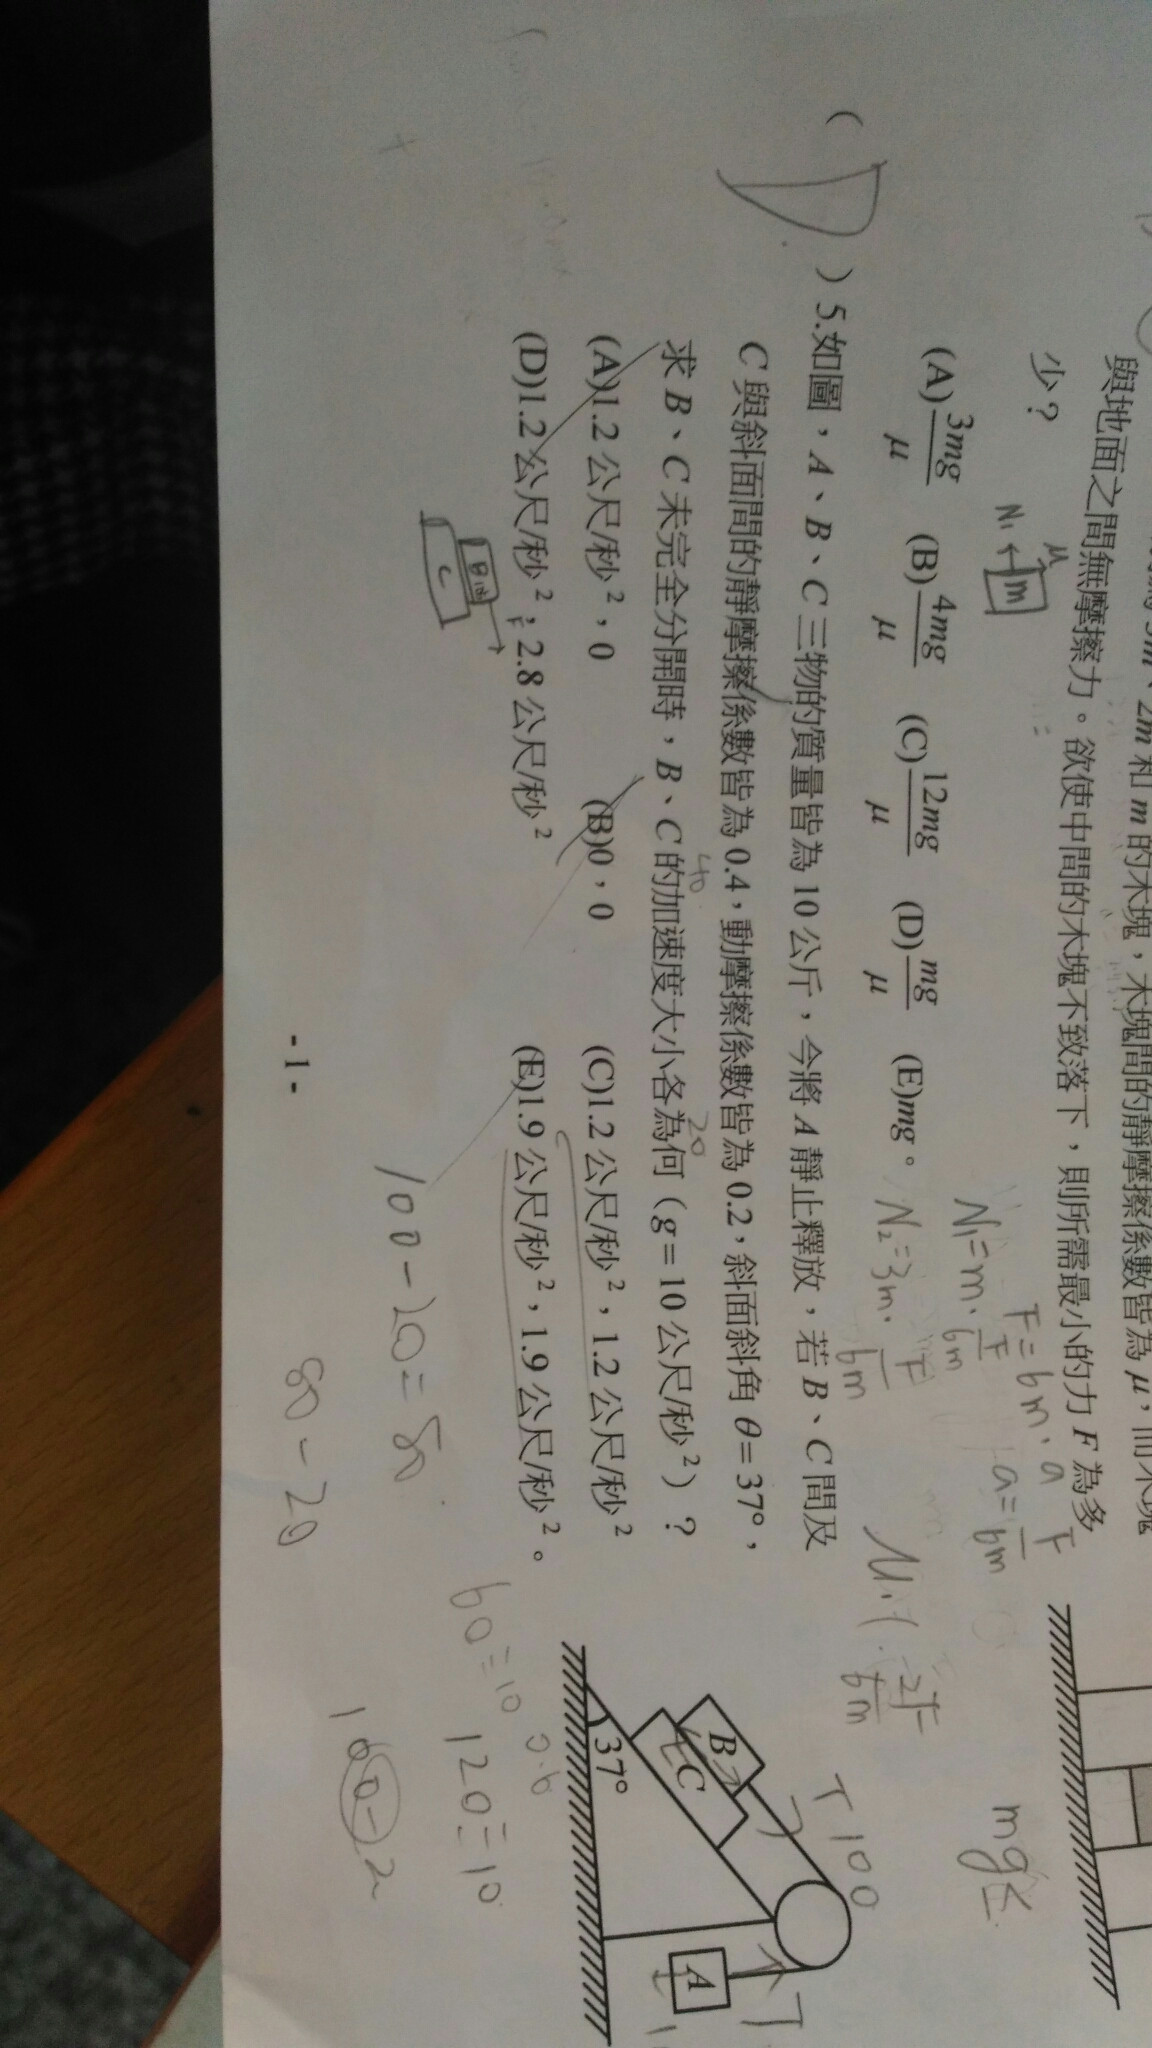 與地面之間無摩擦力。欲使中間的木塊不致落下，則所需最小的力 F 為多
少？
(A) 3mg/μ (B) 4mg/μ (C) 12mg/μ (D) mg/μ (E)mg。
N₁ ← m
μ
F=6m·a
a=F/6m
N₁=m·F/6m
N₂=3m·F/6m
mg≤
2F/6m
( D ) 5.如圖，A、B、C 三物的質量皆為 10 公斤，今將 A 靜止釋放，若 B、C 間及
C 與斜面間的靜摩擦係數皆為 0.4，動摩擦係數皆為 0.2，斜面斜角 θ＝37°，
求 B、C 未完全分開時，B、C 的加速度大小各為何（g＝10 公尺/秒²）？
(A)1.2 公尺/秒²，0 (B)0，0 (C)1.2 公尺/秒²，1.2 公尺/秒²
(D)1.2 公尺/秒²，2.8 公尺/秒² (E)1.9 公尺/秒²，1.9 公尺/秒²。
40
20
T 100
B
C
37°
A
T
B
C
F
100-20=80
80-20
60=10
0.6
120=10
- 1 -